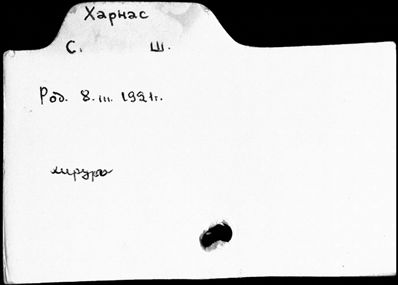 Харнас
С. Ш.
Род. 8. III. 1921г.
хирург